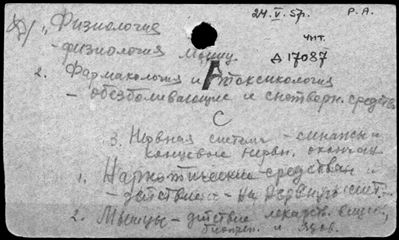 24. V. 57. P. A.
"Физиология
чит.
- физиология мышц. Д 17087
2. Фармакология и токсикология
- обезболивающие и снотворн. средств
С
3. Нервная система - синапсы и
концевые нервн. окончан
1. Наркотические средства и
- действие - на нервную сист.
2. Мышцы - действие лекарств. вещ.